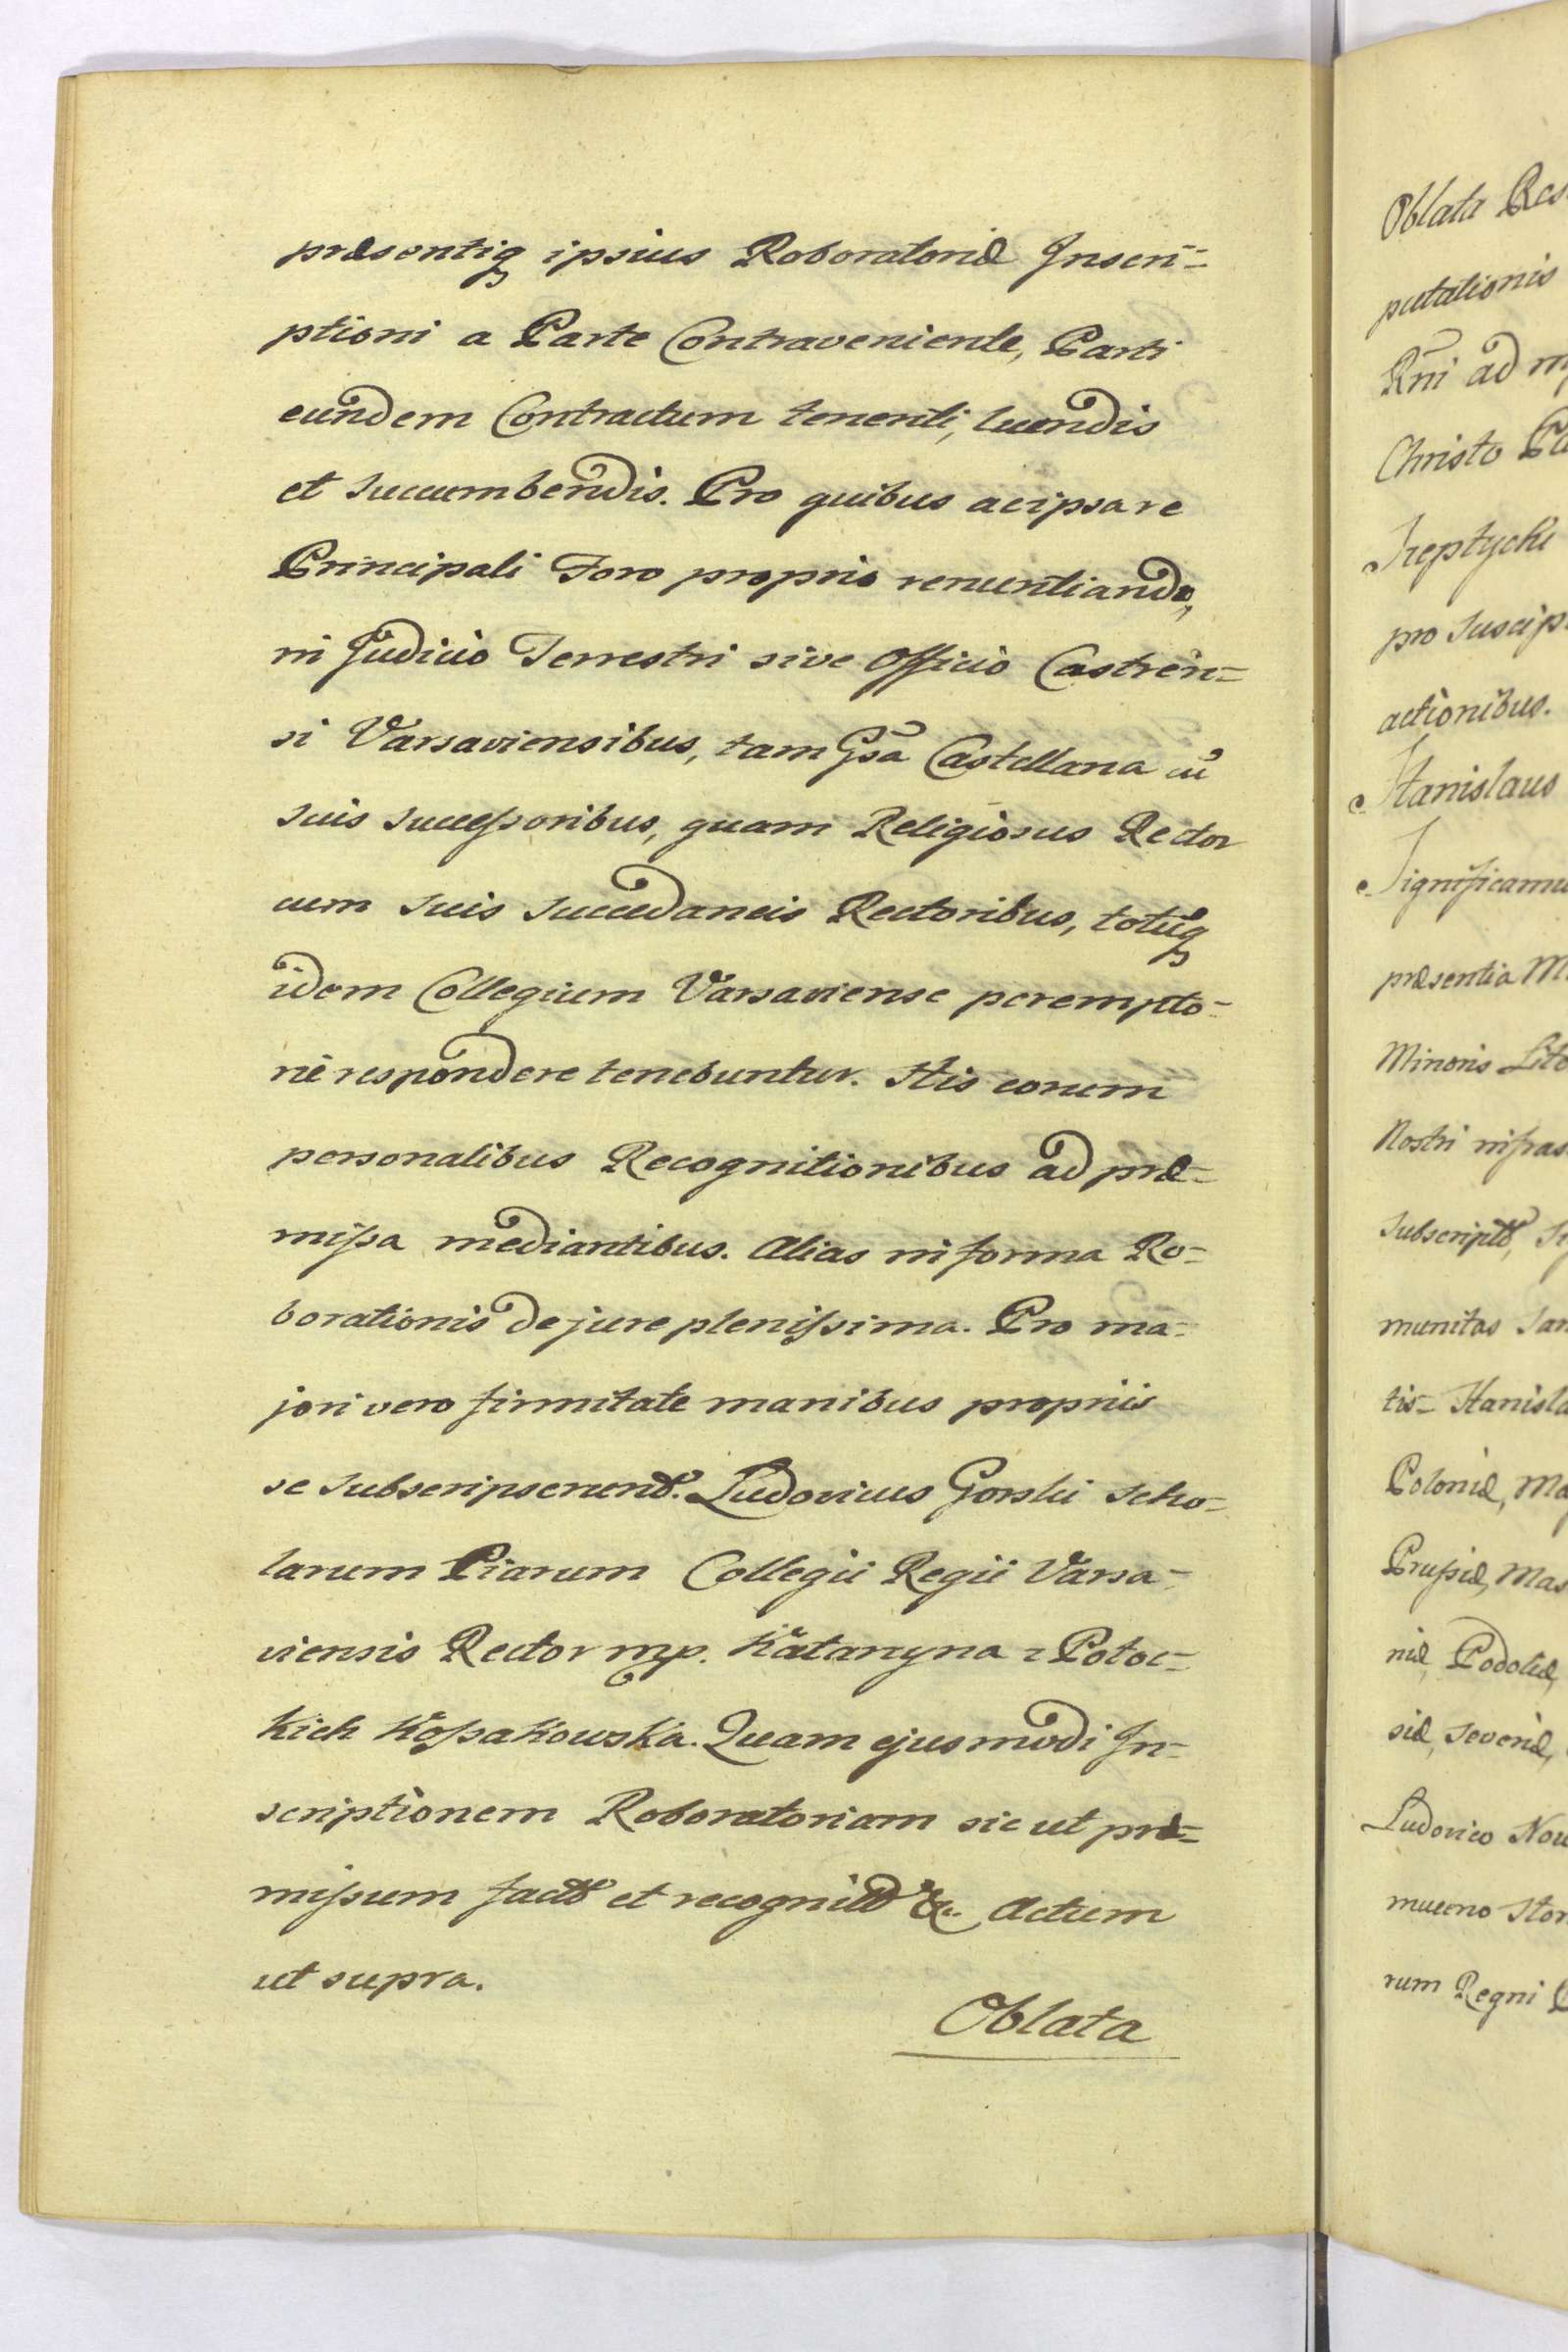 præsentiq ipsius Roboratoriæ Inscri=
ptioni a Parte Contraveniente, Parti
eundem Contractum tenenti, luendis
et succumbendis. Pro quibus ac ipsa re
Principali Foro proprio renuntiando,
in Judicio Terrestri sive Officio Castren=
si Varsaviensibus, tam Gsa Castellana cũ
suis successoribus, quam Religiosus Rector
cum suis succedaneis Rectoribus, totũq
idem Collegium Varsaviense perempto=
rie respondere tenebuntur. His eorum
personalibus Recognitionibus ad præ=
missa mediantibus. Alias in forma Ro=
borationis de jure plenissima. Pro ma=
jori vero firmitate manibus propriis
se subscripserunt. Ludovicus Gorski Scho=
larum Piarum Collegii Regii Varsa=
viensis Rector mp. Katarzyna z Potoc=
kich Kossakowska. Quam ejusmodi In=
scriptionem Roboratoriam sic ut præ=
missum fact et recognit &c. Actum
ut supra.
Oblata
Oblata Res
putationis
Rni ad m
Christo Pa
Szeptycki
pro suscip
actionibus.
Stanislaus
Significamu
præsentia M
Minoris Lit
Nostri infras
Subscript, S
munitas San
tis= Stanisla
Poloniæ, Ma
Prussiæ, Mas
niæ, Podoliæ,
siæ, Severiæ,
Ludovico Now
mueno Stor
rum Regni